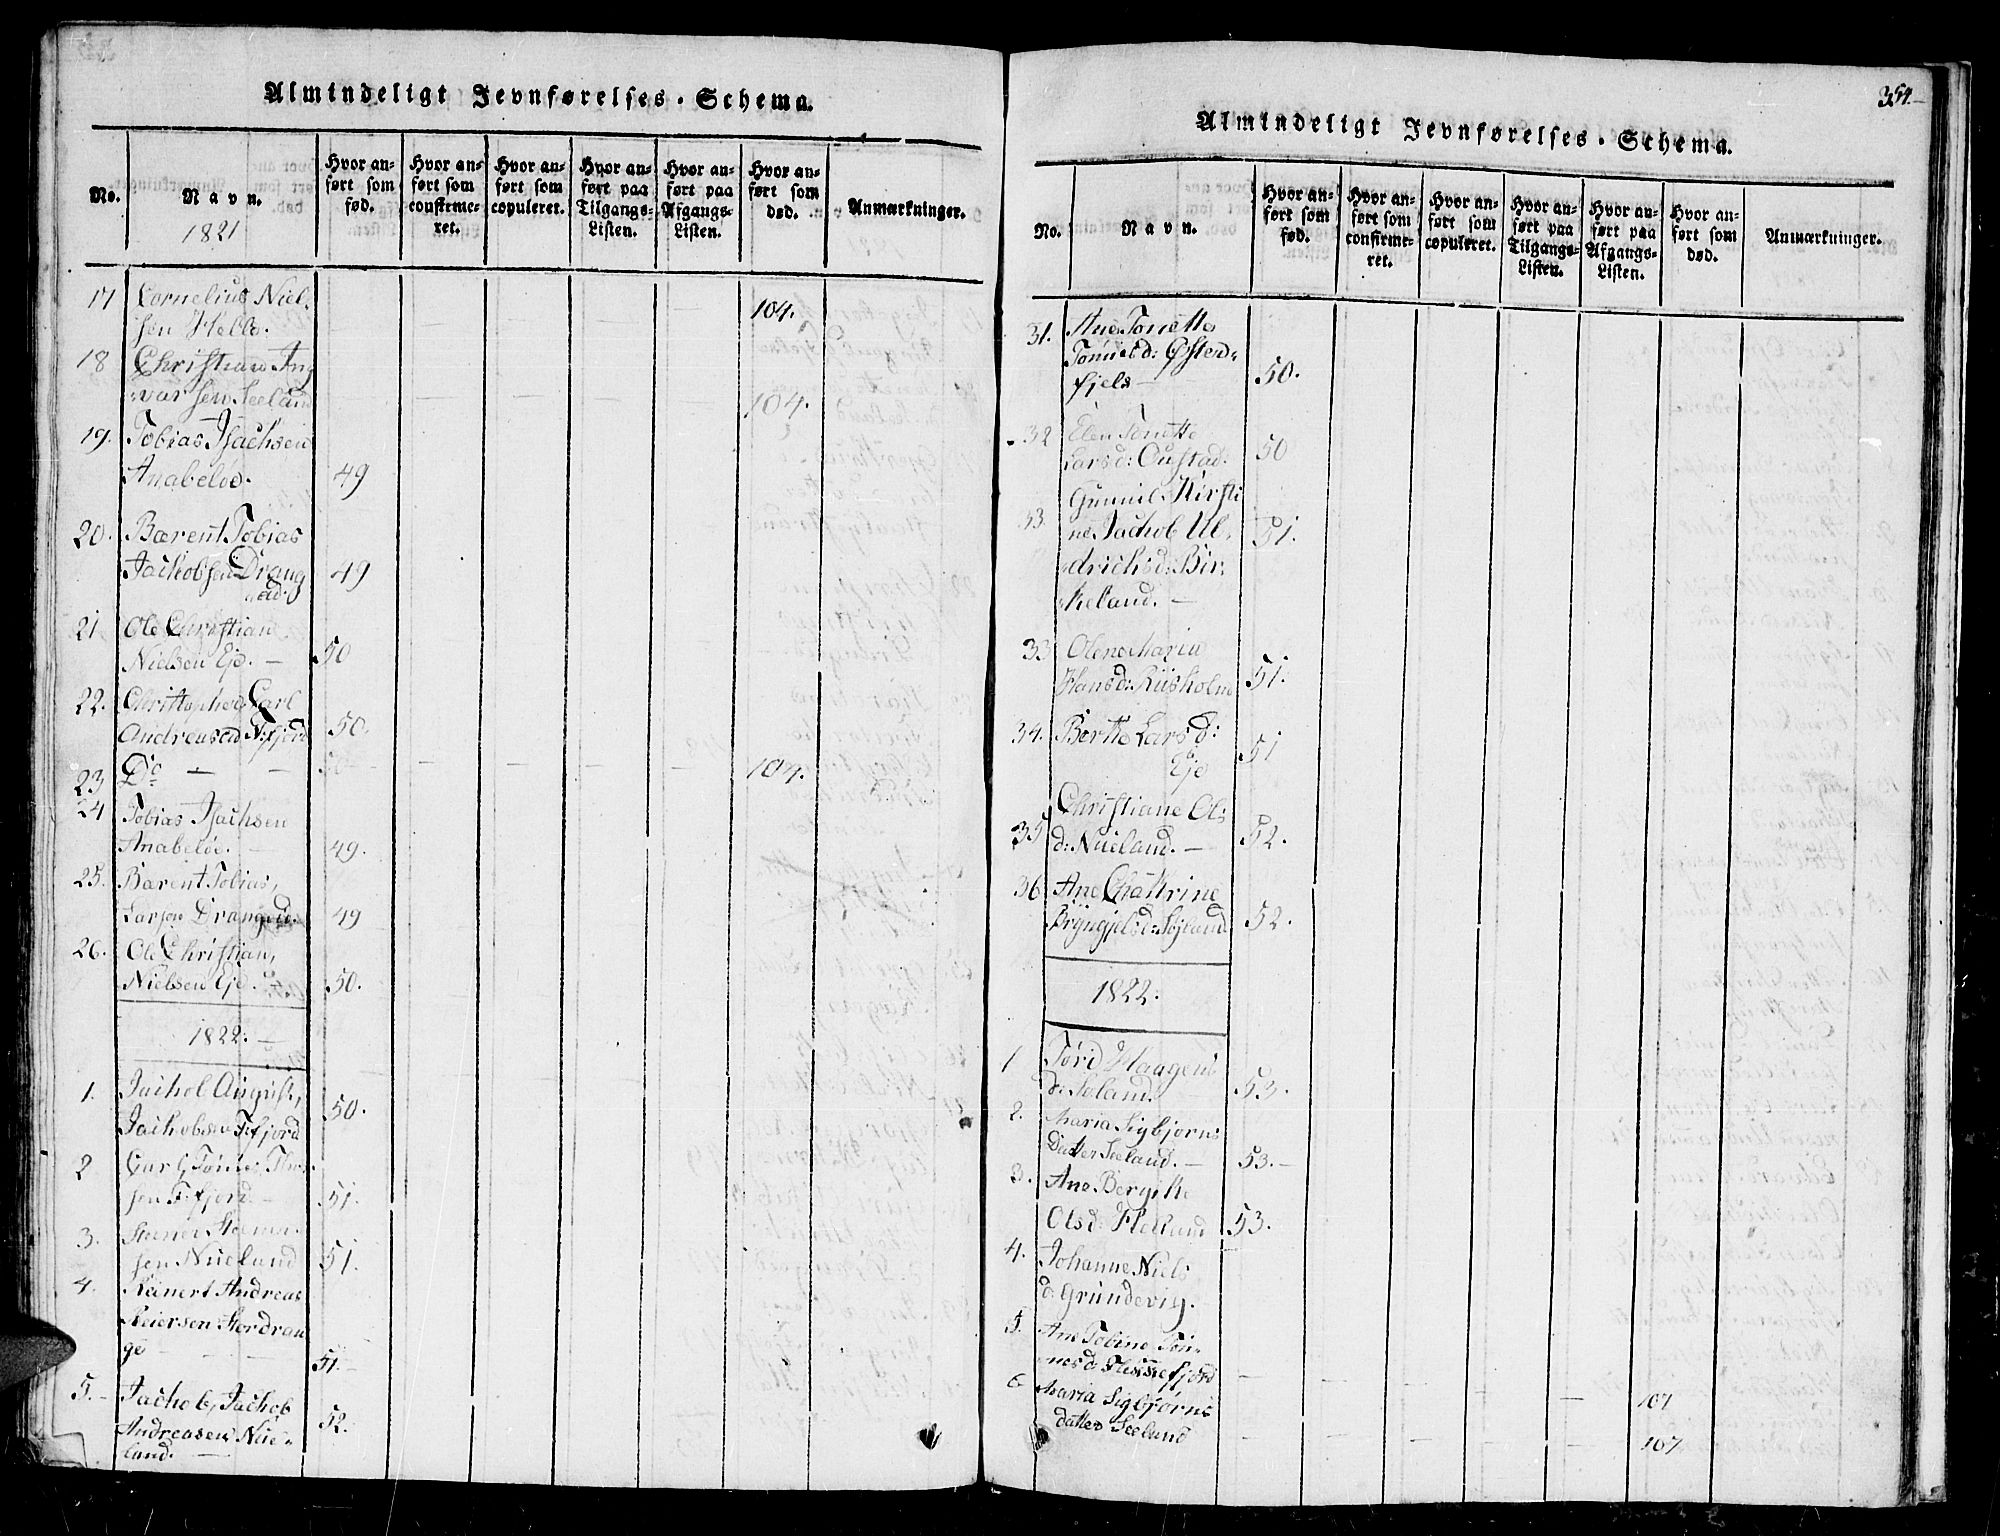 Almindeligt Jevnførelses-Schema.
No.
Navn.
1821
Hvor an-
ført som
fød.
Hvor an-
ført som
confirme-
ret.
Hvor an-
ført som
copuleret.
Hvor an-
ført paa
Tilgangs-
Listen.
Hvor an-
ført paa
Afgangs-
Listen.
Hvor an-
ført som
død.
Anmærkninger.
17 Cornelius Niel-
sen 104.
18 Christian Ing
varsen Seeland 104.
19. Tobias Isachsen
Anabeløe. 49
20. Bærent Tobias
Jachobsen Drang
eid. 49
21 Ole Christian
Nielsen Eje. — 50
22. Christopher Carl
Andreasen F:fjord 50.
23 Do — — 50 — 104.
24 Tobias Isachsen
Anabeløe. — 49.
25. Bærent Tobias,
Larsen Drangeid. 49
26. Ole Christian,
Nielsen Eje. — 50.
1822. —
1. Jachob August,
Jachobsen F:fjord 50.
2 Carl Tønnes
sen F:fjord — 51.
3.
sen Nueland 51.
4. Reinert Andreas
Reiersen Stordran
ge — — — 51. —
5. — Jachob, Jachob
Andreasen Nue-
land. — 52.
354 —
Almindeligt Jevnførelses-Schema.
No.
Navn.
Hvor an-
ført som
fød.
Hvor an-
ført som
confirme-
ret.
Hvor an-
ført som
copuleret.
Hvor an-
ført paa
Tilgangs-
Listen.
Hvor an-
ført paa
Afgangs-
Listen.
Hvor an-
ført som
død.
Anmærkninger.
31. Ane Tonette
Tønnesd: Østend-
fjeld — 50.
32 Elen Tonette
Larsd: Oustad. 50
33. Gunnil Kirsti
ne Jachob Ul-
drichsd: Bir-
keland. — 51.
33 Olene Maria
Hansd: Riisholm 51.
34. Berthe Lars d:
Eje 51
35 Christiane Ols
d: Nueland. — 52.
36 Ane Chathrine
Bryngjelsd: 52.
1822.
1 Tørid Haagens
d: 53.
2. Maria Sigbjørns
Datter Seeland. — 53. —
3. Ane Bergithe
Olsd: Fleland 53.
4. Johanne Niels
d: Grundevig.
5. Ane Tobine Tøn-
nesd: Flekkefjord — 107
6 Maria Sigbjørns
datter Seeland — 107